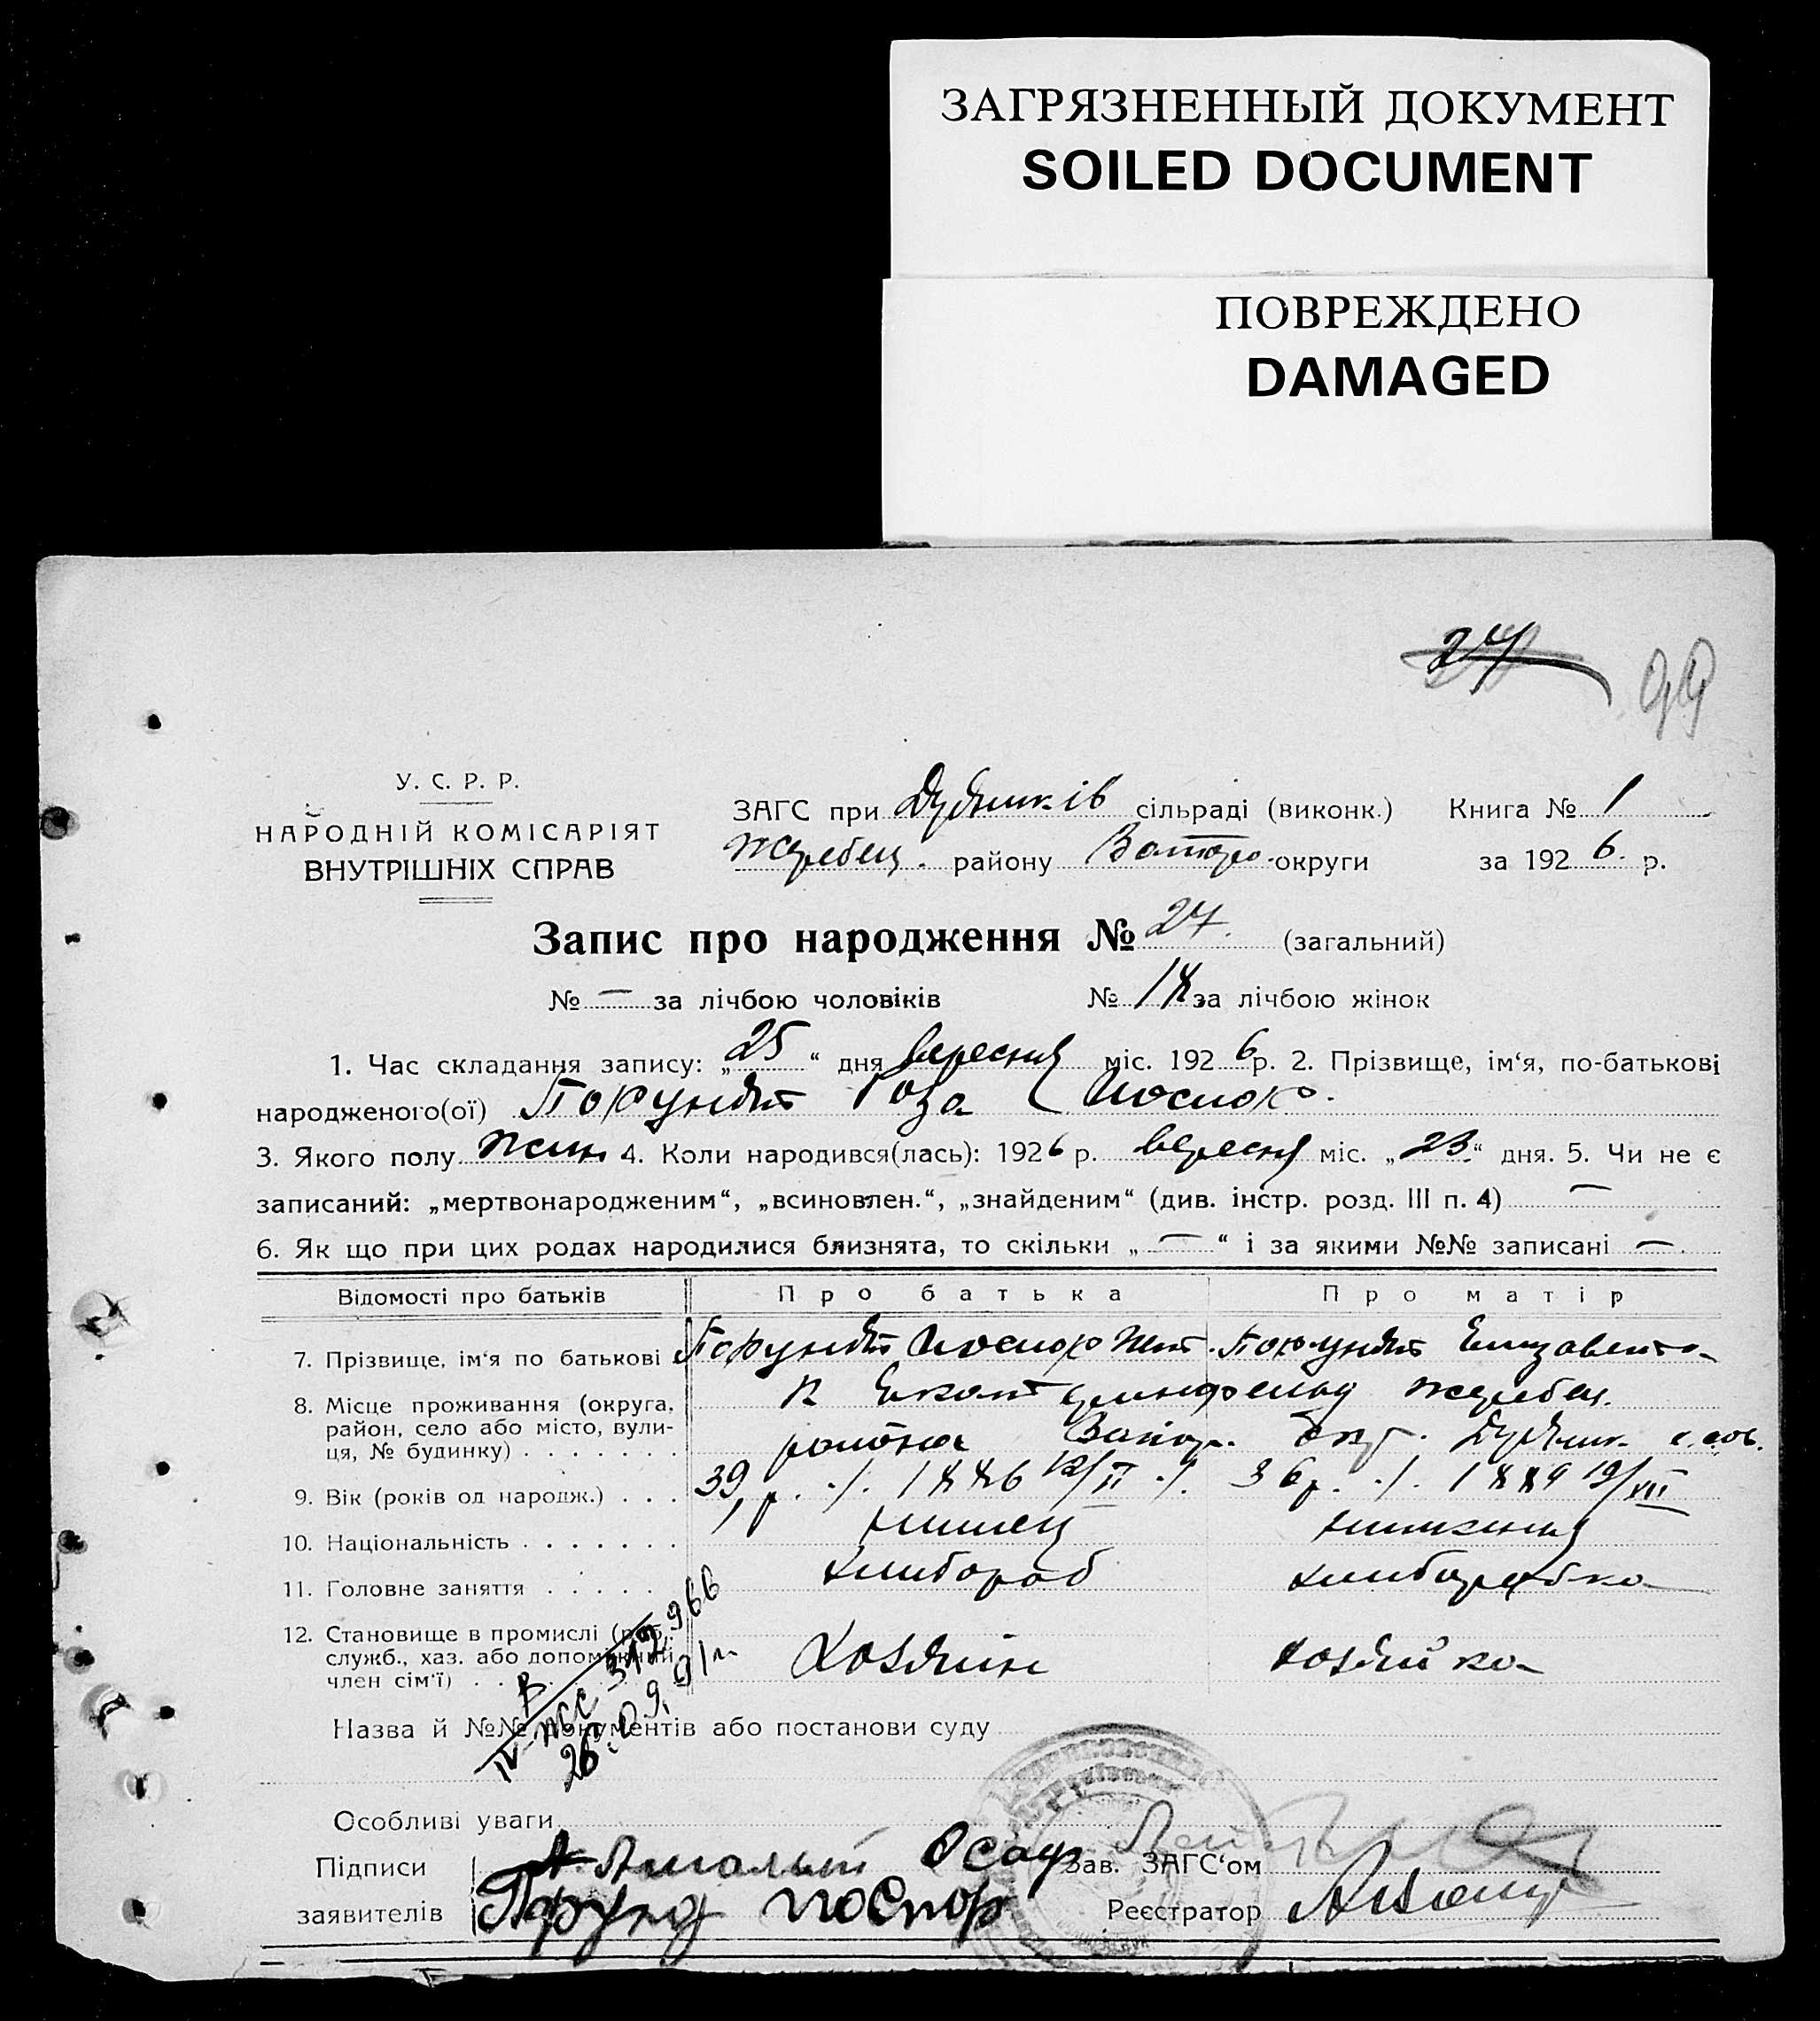 ЗАГРЯЗНЕННЫЙ ДОКУМЕНТ
SOILED DOCUMENT
ПОВРЕЖДЕНО
DAMAGED
27
99
У. С. Р. Р.
НАРОДНІЙ КОМІСАРІЯТ
ВНУТРІШНІХ СПРАВ
ЗАГС при сільраді (виконк.) Книга № 1
Жеребец. району округи за 1926. р.
Запис про народження № 27. (загальний)
№ — за лічбою чоловіків № 18 за лічбою жінок
1. Час складання запису: „25“ дня вересня міс. 1926 р. 2. Прізвище, ім‘я, по-батькові
народженого(ої) Роза
3. Якого полу жін. 4. Коли народився(лась): 1926 р. вересня міс. „23.“ дня. 5. Чи не є
записаний: „мертвонародженим“, „всиновлен.“, „знайденим“ (див. інстр. розд. III п. 4) —
6. Як що при цих родах народилися близнята, то скільки „—“ і за якими №№ записані —.
Відомості про батьків Про батька Про матір
7. Прізвище, ім‘я по батькові Елизавета
8. Місце проживання (округа, район, село або місто, вулиця, № будинку) Жеребец.
района Запор. Окр.
9. Вік (років од народж.) 39 р. 1886 12/II 36 р. 1889 19/VIII
10. Національність німець німкеня
11. Головне заняття хлібороб хліборобка
12. Становище в промислі (роб., служб., хаз. або допоміжний член сім‘ї) Хозяін хозяйка
Назва й №№ документів або постанови суду
Особливі уваги
Підписи Зав. ЗАГС‘ом
заявителів Реєстратор